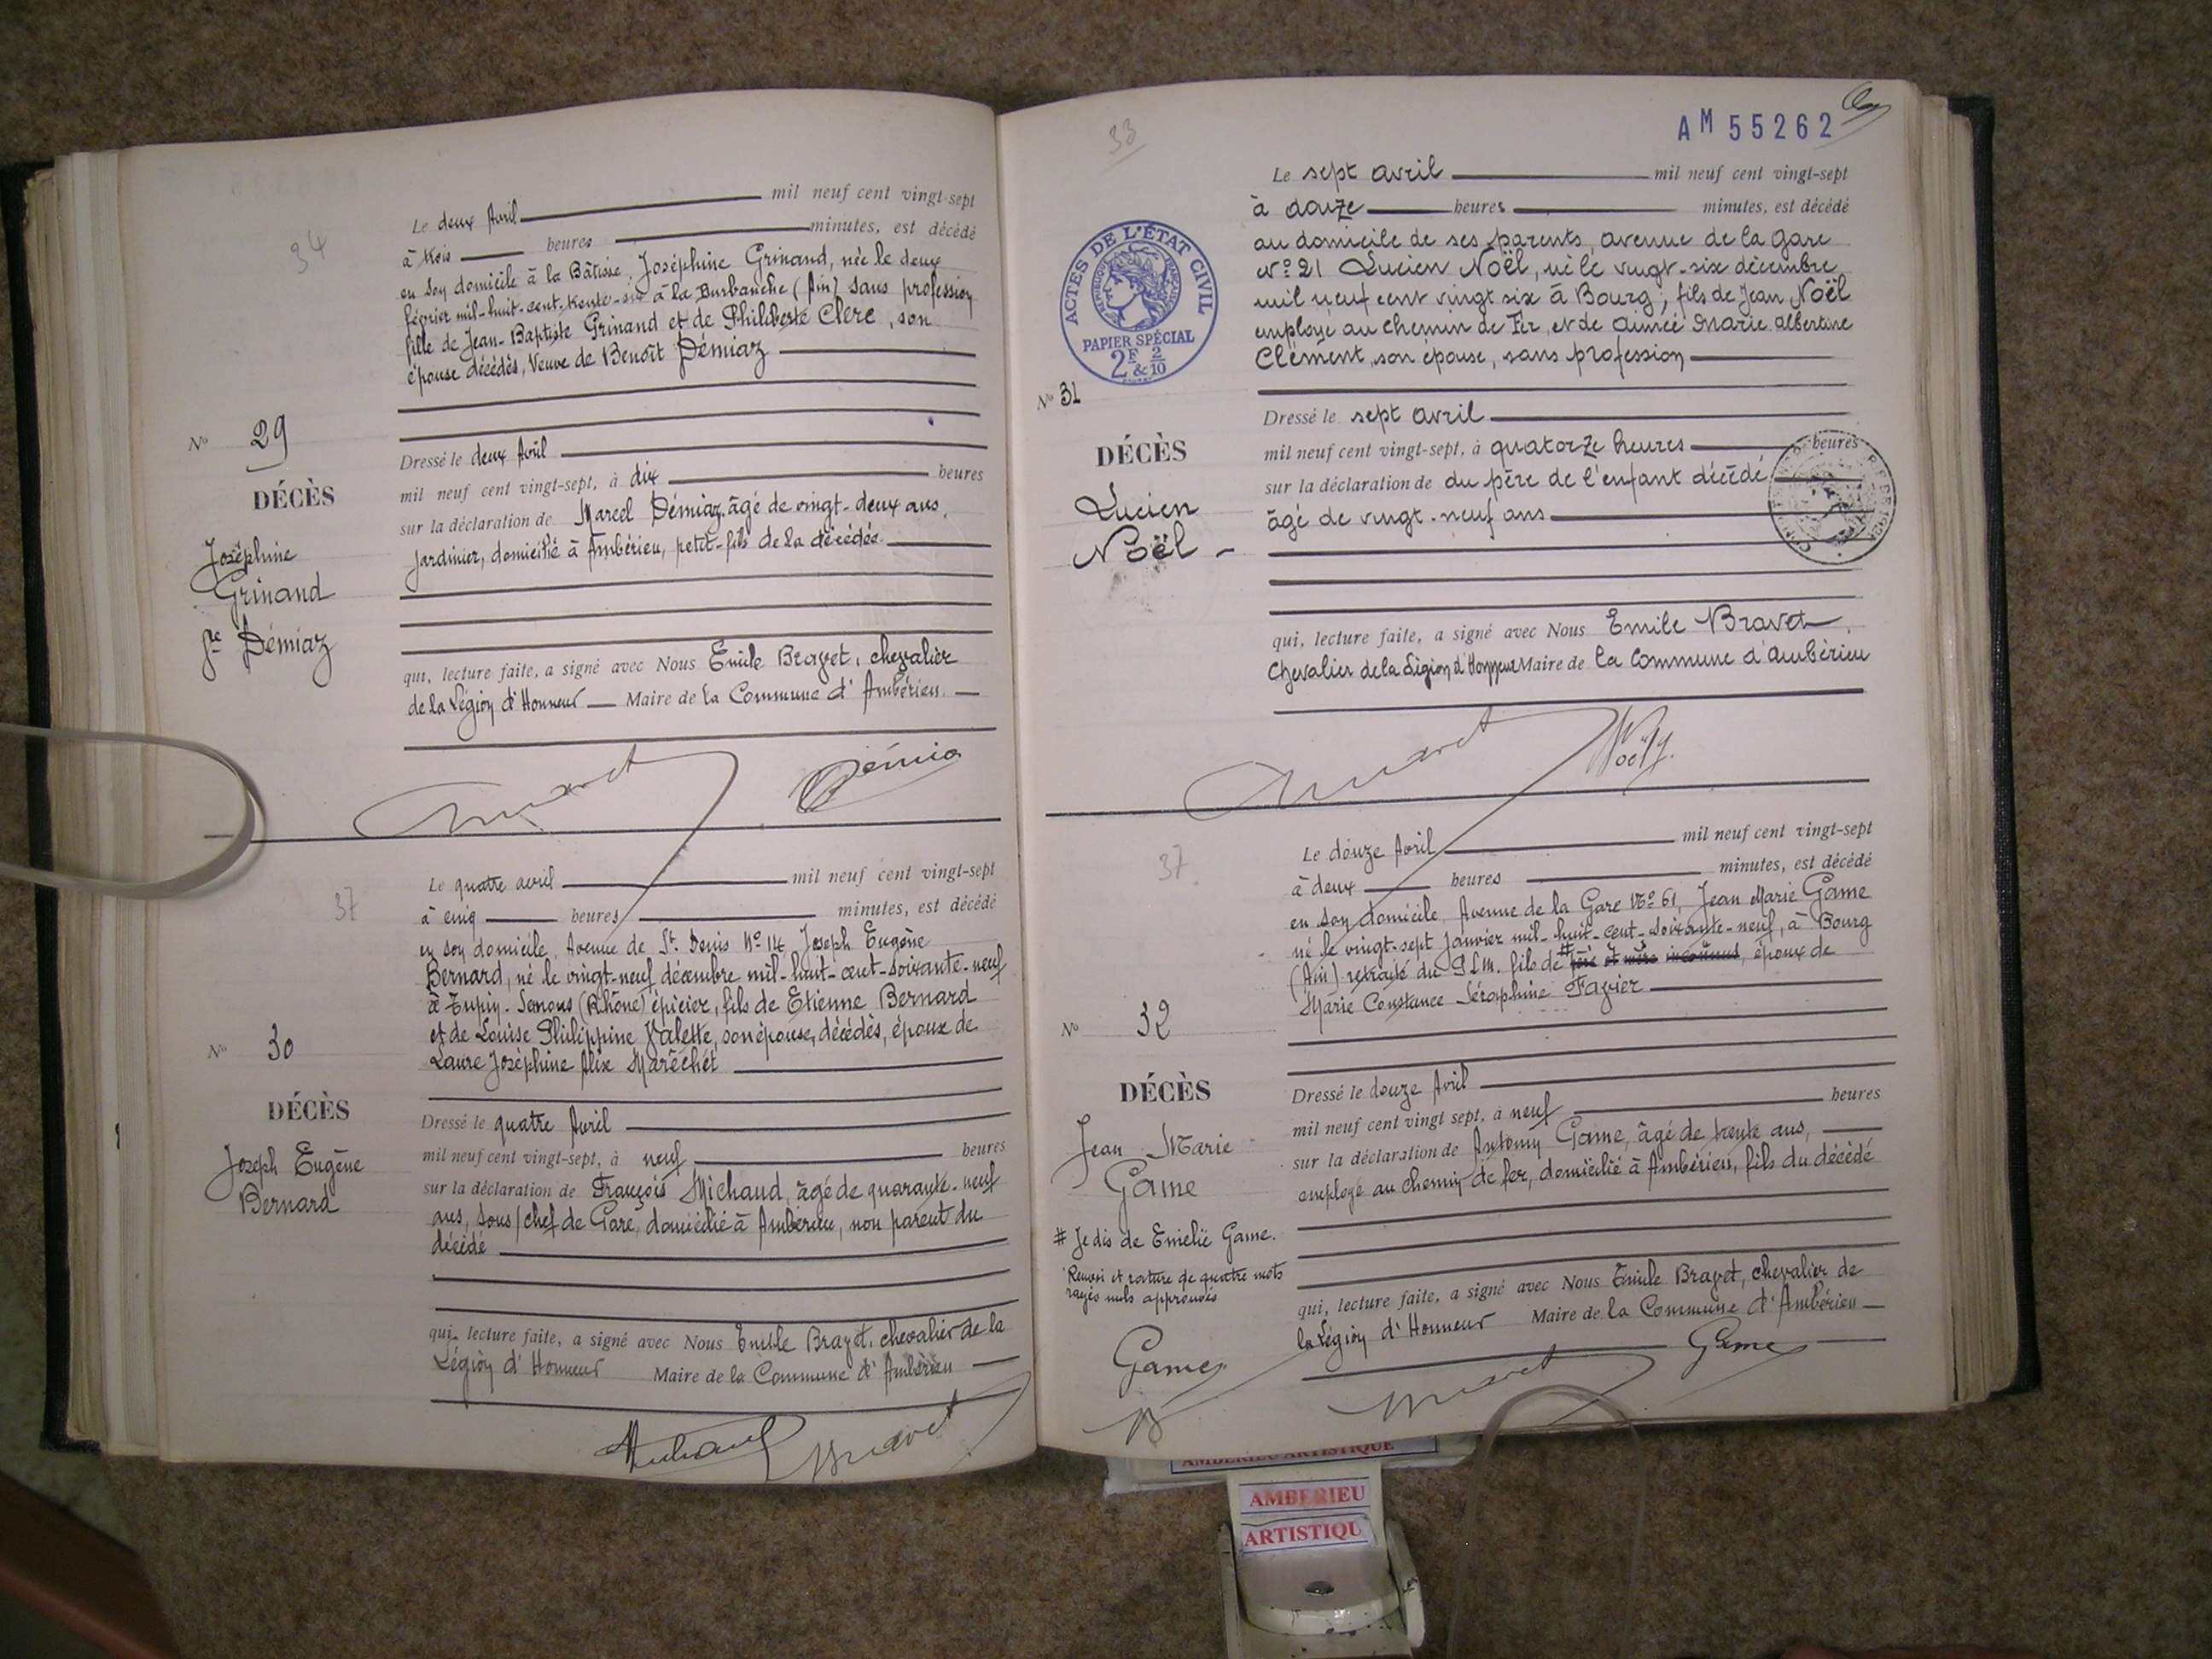 34
Le deux Avril mil neuf cent vingt-sept
à trois heures minutes, est décédé
en son domicile à la Bâtisse, Joséphine Grinand, née le deux
février mil-huit-cent-trente-six à la Burbanche (Ain) sans profession
fille de Jean-Baptiste Grinand et de Philiberte Clerc, son
épouse décédés, Veuve de Benoît Démiaz
No 29
DÉCÈS
Joséphine
Grinand
Démiaz
Dressé le deux Avril
mil neuf cent vingt-sept, à dix heures
sur la déclaration de Marcel Démiaz âgé de vingt-deux ans,
jardinier, domicilié à Ambérieu, petit-fils de la décédée
qui, lecture faite, a signé avec Nous Emile Bravet, chevalier
de la Légion d'Honneur Maire de la Commune d'Ambérieu
37
Le quatre avril mil neuf cent vingt-sept
à cinq heures minutes, est décédé
en son domicile, Avenue de St. Denis No 14 Joseph Eugène
Bernard, né le vingt-neuf décembre mil-huit-cent-soixante-neuf
à Tupin-Semons (Rhône) épicier, fils de Etienne Bernard
et de Louise Philippine Valette, son épouse, décédés, époux de
Laure Joséphine Alix Maréchét
No 30
DÉCÈS
Joseph Eugène
Bernard
Dressé le quatre Avril
mil neuf cent vingt-sept, à neuf heures
sur la déclaration de François Michaud, âgé de quarante-neuf
ans, sous/chef de Gare, domicilié à Ambérieu, non parent du
décédé
qui, lecture faite, a signé avec Nous Emile Bravet, chevalier de la
Légion d'Honneur Maire de la Commune d'Ambérieu
Bravet
33
AM 55262
ACTES DE L'ÉTAT CIVIL
RÉPUBLIQUE FRANÇAISE
PAPIER SPÉCIAL
2F & 2/10
Le sept avril mil neuf cent vingt-sept
à douze heures minutes, est décédé
au domicile de ses parents, avenue de la gare
No 21 Lucien Noël, né le vingt-six décembre
mil neuf cent vingt six à Bourg, fils de Jean Noël
employé au chemin de Fer, et de Aimée Marie Albertine
Clément, son épouse, sans profession
No 31
DÉCÈS
Lucien
Noël
Dressé le sept avril
mil neuf cent vingt-sept, à quatorze heures heures
sur la déclaration de du père de l'enfant décédé
âgé de vingt-neuf ans
qui, lecture faite, a signé avec Nous Emile Bravet,
Chevalier de la Légion d'Honneur Maire de la Commune d'Ambérieu
37
Le douze Avril mil neuf cent vingt-sept
à deux heures minutes, est décédé
en son domicile, Avenue de la Gare No 61, Jean Marie Game
né le vingt-sept Janvier mil-huit-cent-soixante-neuf, à Bourg
(Ain) retraité du P.L.M. fils de # père et mère inconnus, époux de
Marie Constance Séraphine Favier
No 32
DÉCÈS
Jean Marie
Game
# Je dis de Emélie Game.
Renvoi et rature de quatre mots
rayés nuls approuvés
Game
B
Dressé le douze Avril
mil neuf cent vingt sept, à neuf heures
sur la déclaration de Antony Game, âgé de trente ans,
employé au chemin de fer, domicilié à Ambérieu, fils du décédé
qui, lecture faite, a signé avec Nous Emile Bravet, chevalier de
la Légion d'Honneur Maire de la Commune d'Ambérieu
Game
AMBERIEU ARTISTIQUE
AMBERIEU
ARTISTIQU